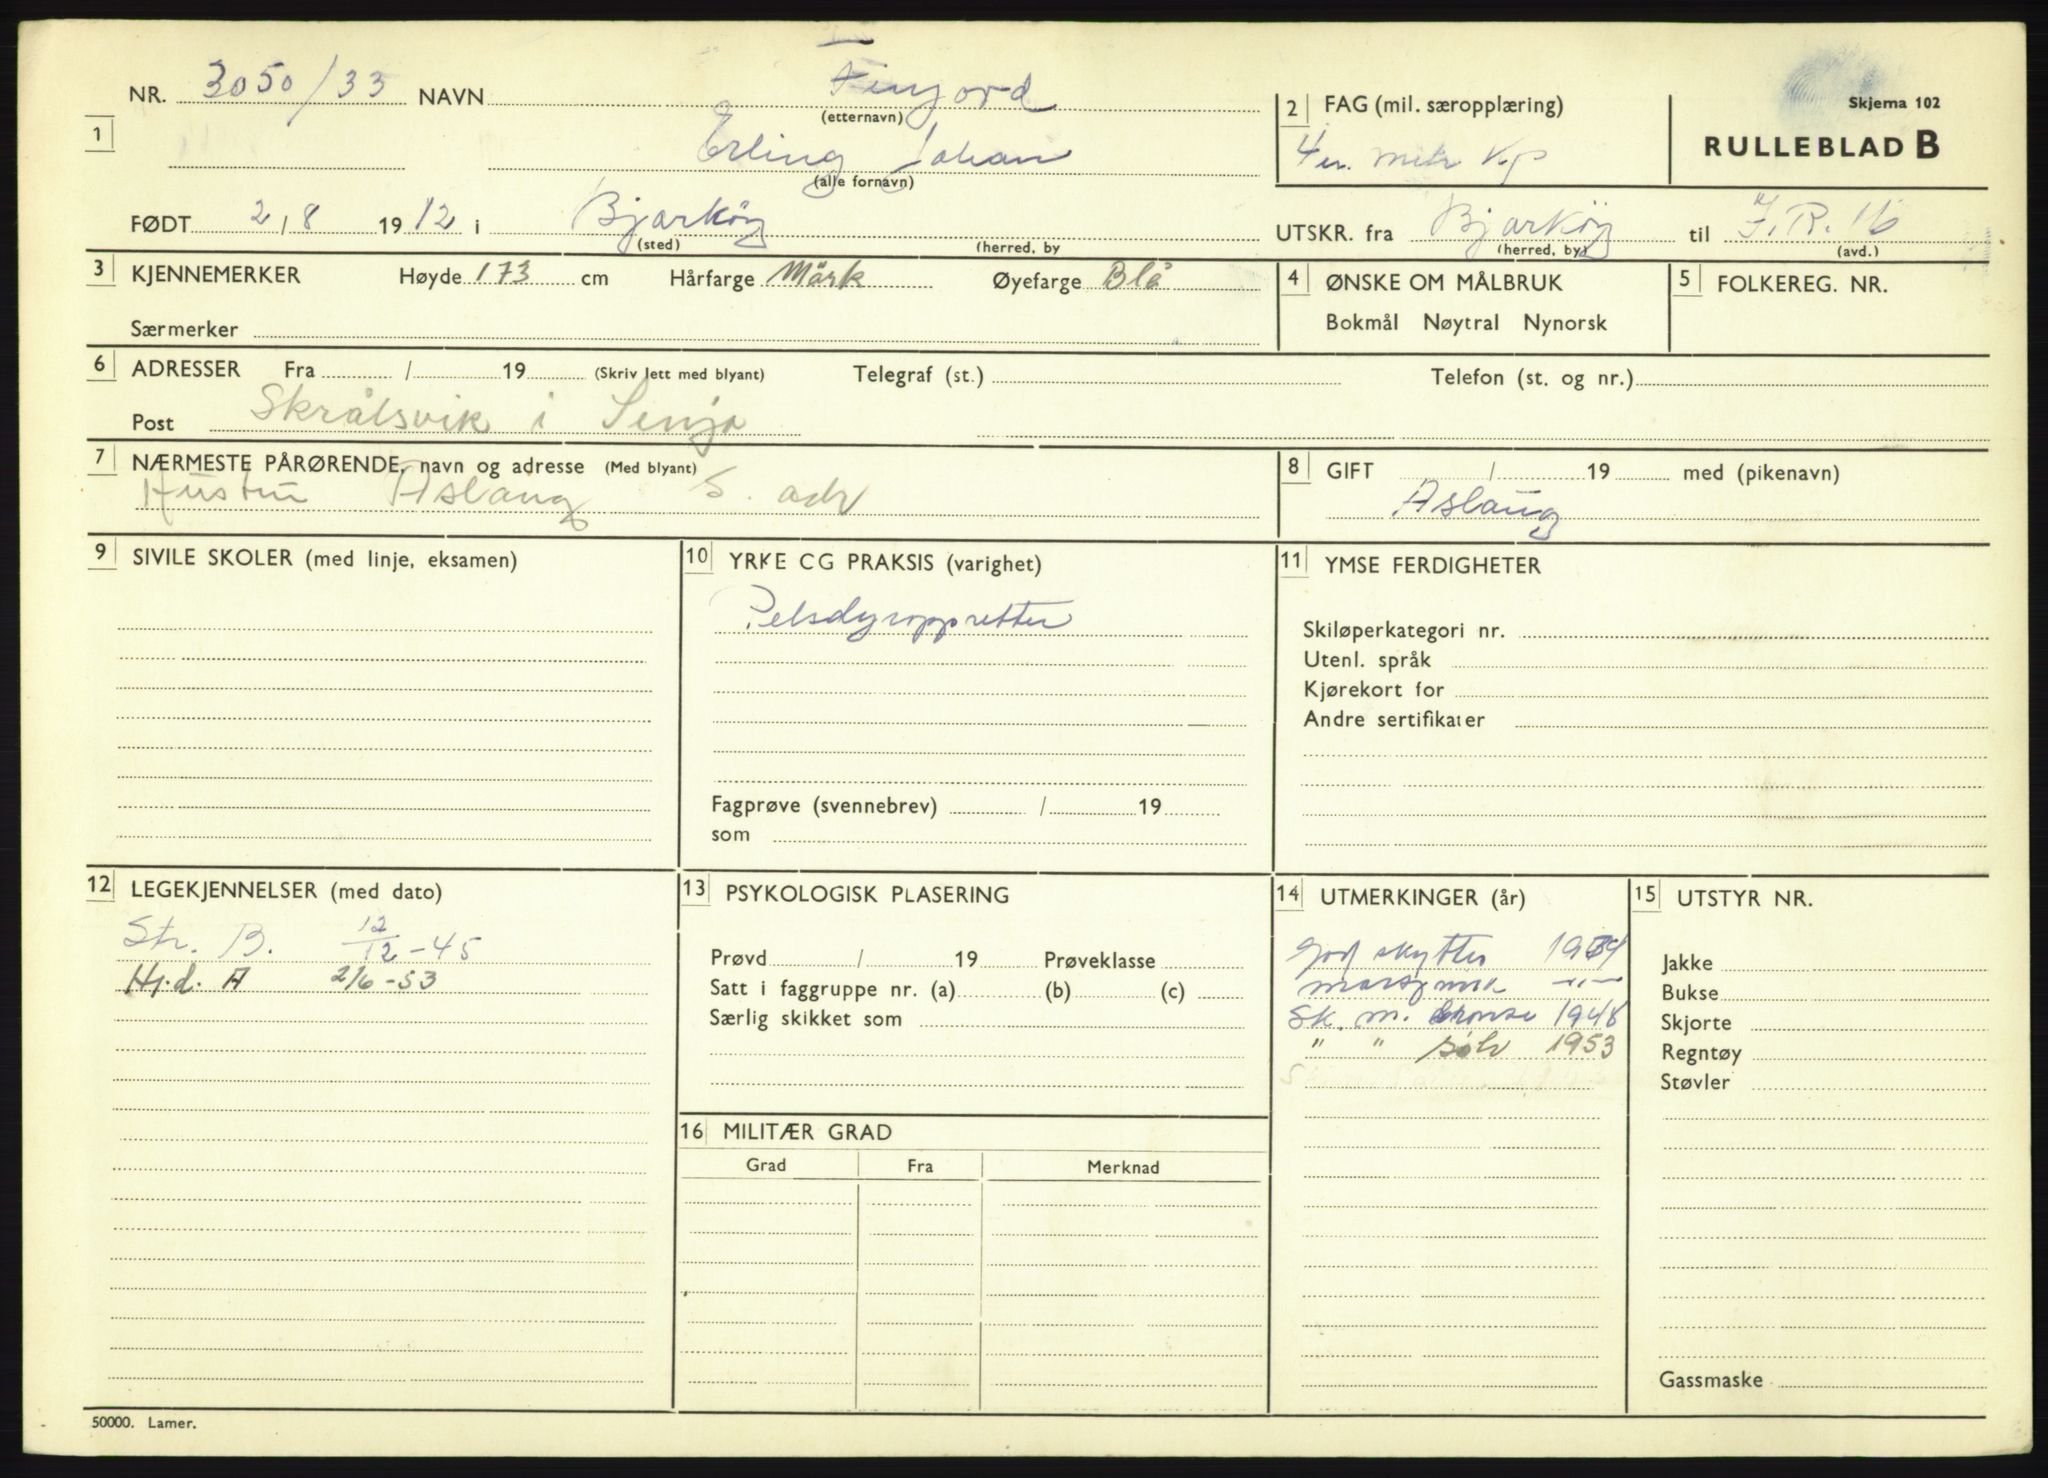 NR. 3050/33 NAVN Finjord
(etternavn)
1
Erling Johan
(alle fornavn)
FØDT 2/8 1912 i Bjarköy
(sted) (herred, by
2 FAG (mil. særopplæring)
4 en. mitr Kp
Skjema 102
RULLEBLAD B
UTSKR. fra Bjarköy til I.R. 16
(herred, by) (avd.)
3 KJENNEMERKER Høyde 173 cm Hårfarge Mörk Øyefarge Blå
Særmerker
4 ØNSKE OM MÅLBRUK
Bokmål Nøytral Nynorsk
5 FOLKEREG. NR.
6 ADRESSER Fra / 19 (Skriv lett med blyant) Telegraf (st.) Telefon (st. og nr.)
Post Skrålsvik i Senja
7 NÆRMESTE PÅRØRENDE, navn og adresse (Med blyant)
Hustru Aslaug s. adr
8 GIFT / 19 med (pikenavn)
Aslaug
9 SIVILE SKOLER (med linje, eksamen)
10 YRKE CG PRAKSIS (varighet)
Pelsdyroppretter
Fagprøve (svennebrev) / 19
som
11 YMSE FERDIGHETER
Skiløperkategori nr.
Utenl. språk
Kjørekort for
Andre sertifikater
12 LEGEKJENNELSER (med dato)
Str. B. 12/12-45
H.d. A 2/6-53
13 PSYKOLOGISK PLASERING
Prøvd / 19 Prøveklasse
Satt i faggruppe nr. (a) (b) (c)
Særlig skikket som
14 UTMERKINGER (år)
God skytter 1934
marsjmrk —"—
Sk. m. bronse 1948
" " sølv 1953
15 UTSTYR NR.
Jakke
Bukse
Skjorte
Regntøy
Støvler
Gassmaske
16 MILITÆR GRAD
Grad Fra Merknad
50000. Lamer.